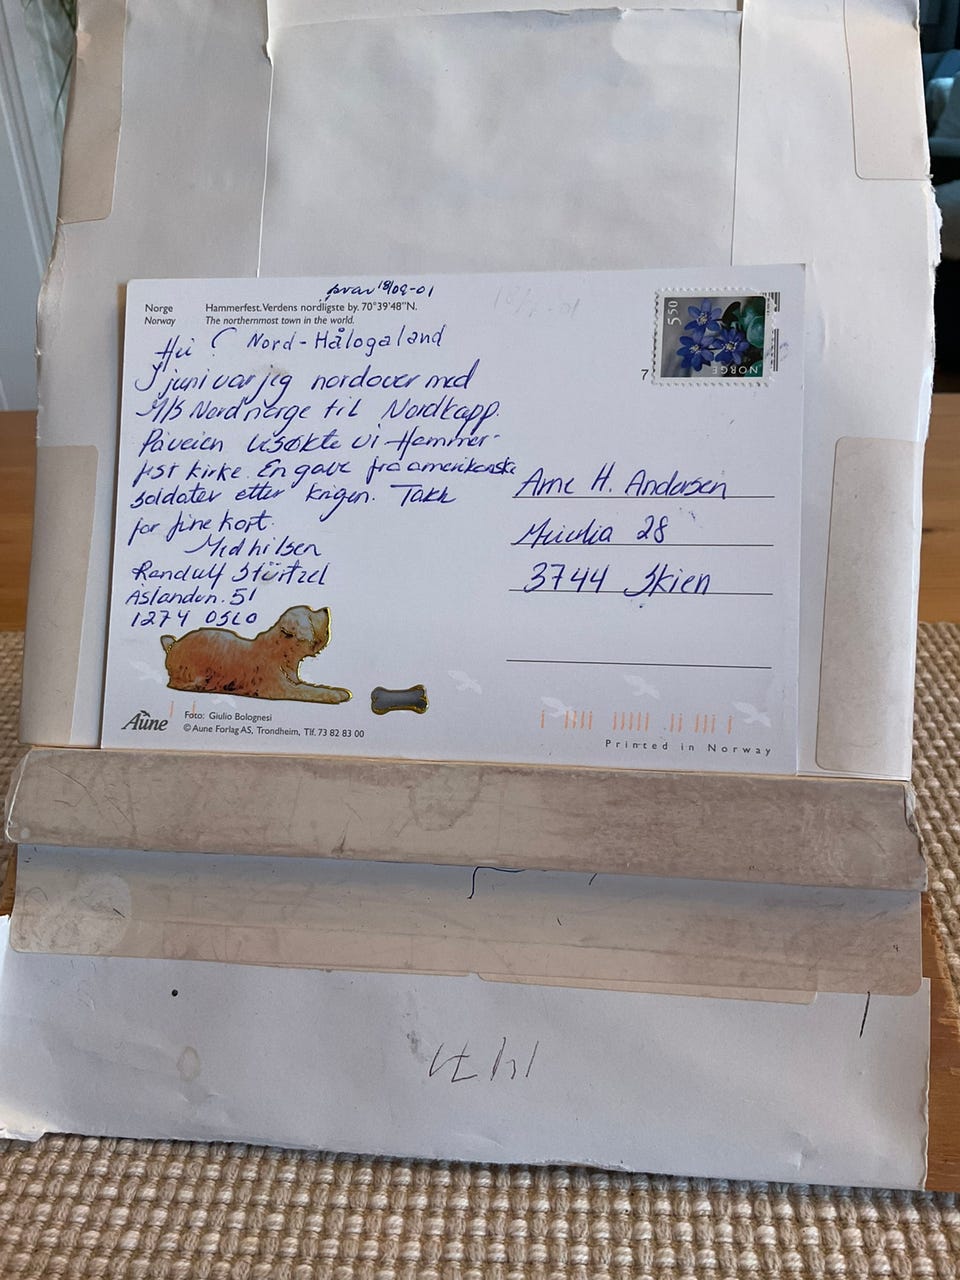 svar 18/09-01
Norge Hammerfest. Verdens nordligste by. 70°39'48"N.
Norway The northernmost town in the world.
Hei! Nord-Hålogaland
I juni var jeg nordover med
M/S Nordnorge til Nordkapp.
På veien besøkte vi Hammer-
fest kirke. En gave fra amerikanske
soldater etter krigen. Takk
for fine kort.
Med hilsen
Randulf Stürtzel
Åslandvn. 51
1274 OSLO
550
NORGE
7
Arne H. Andersen
28
3744 Skien
Aune
Foto: Giulio Bolognesi
© Aune Forlag AS, Trondheim, Tlf. 73 82 83 00
Printed in Norway